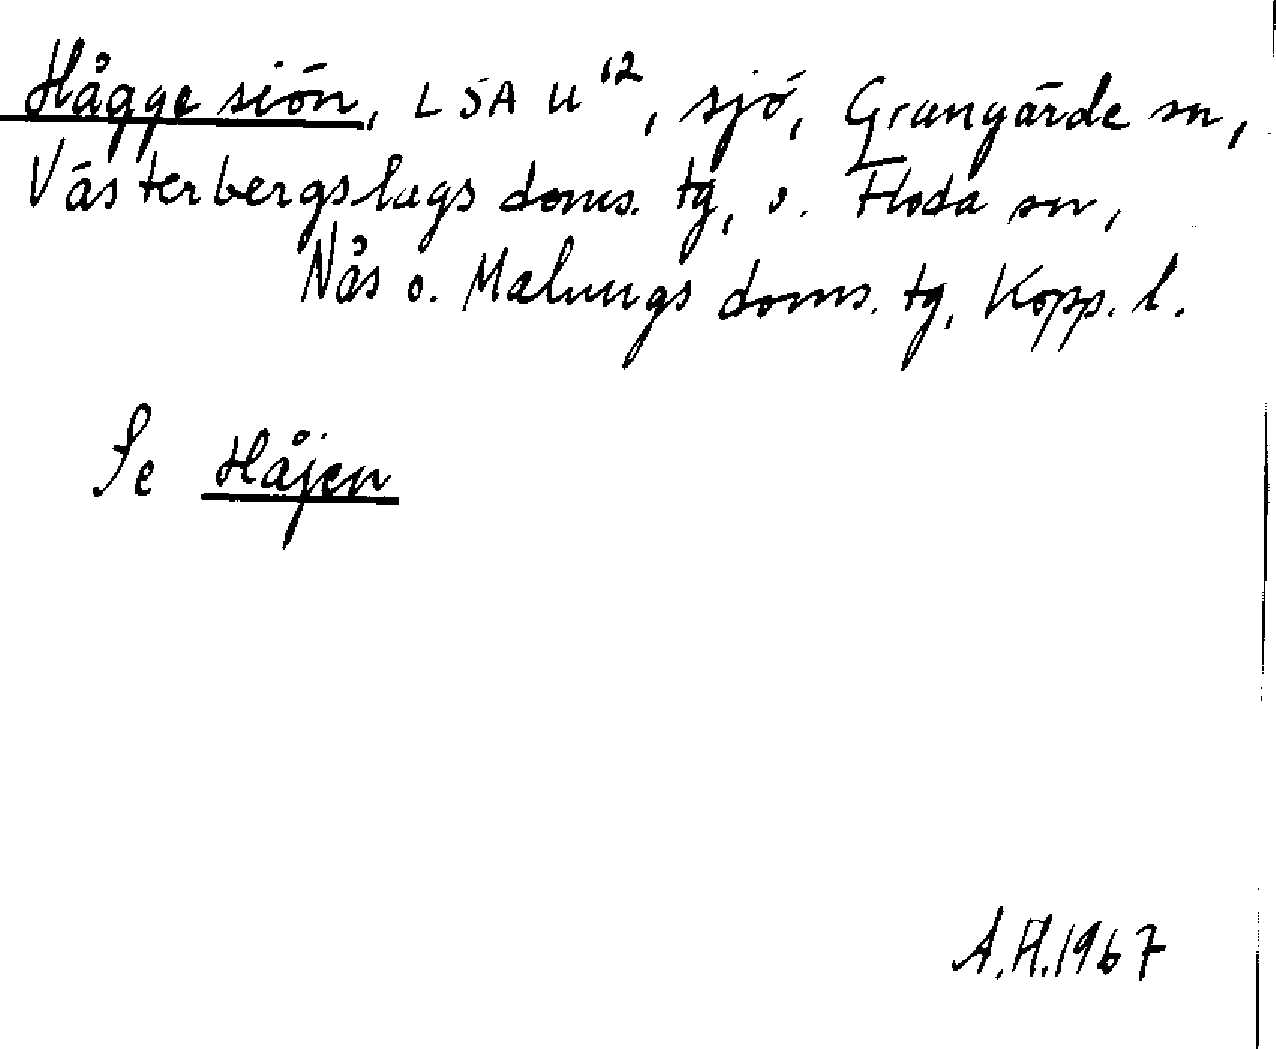 Hågge siön, LSA U¹², sjö, Grangärde sn,
Västerbergslags doms. tg, o. Floda sn,
Nås o. Malungs doms. tg, Kopp. l.
Se Håjen
A.H.1967